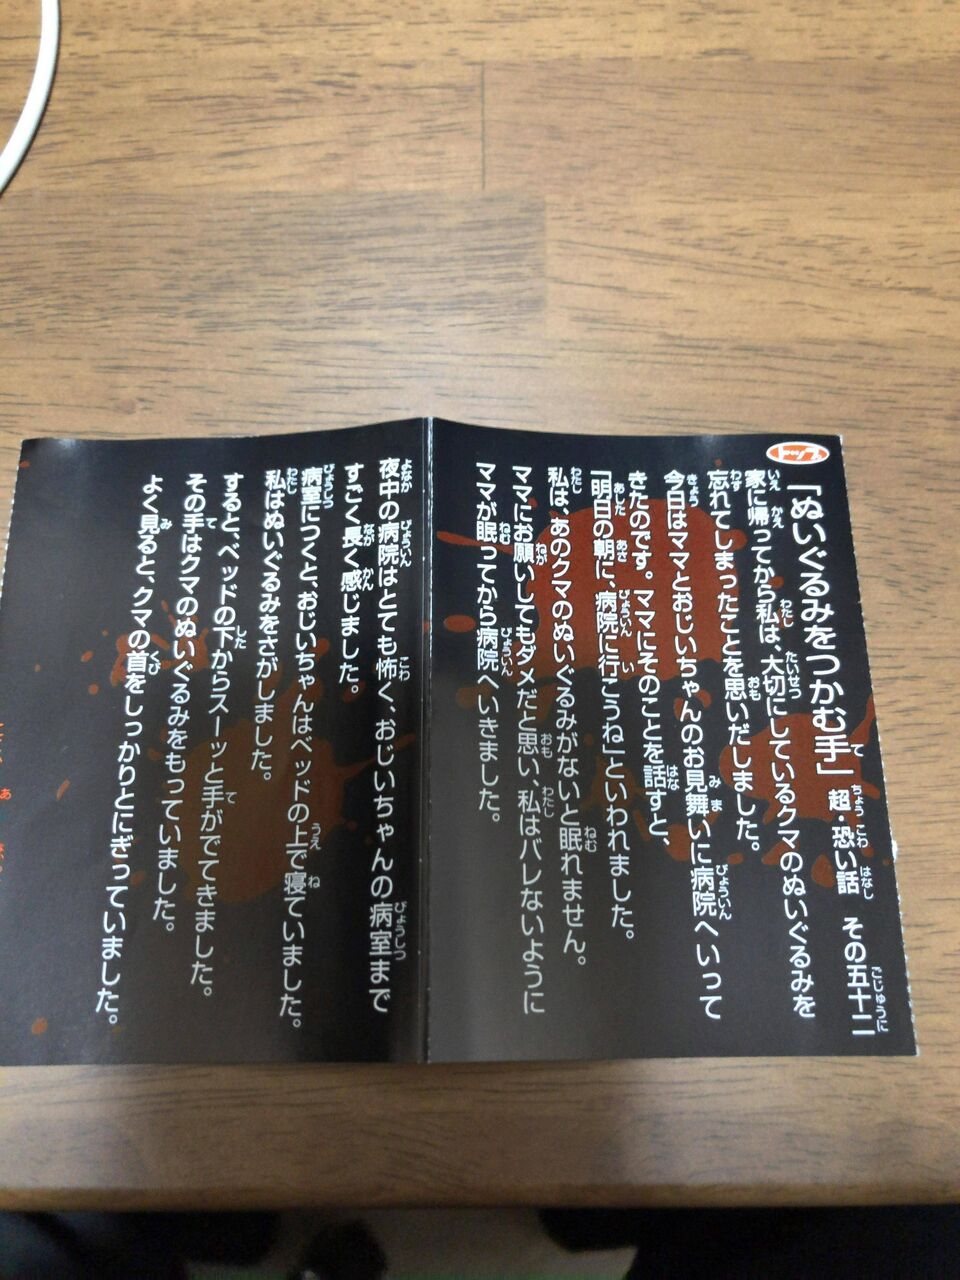 トップ
「ぬいぐるみをつかむ手」 超・恐い話 その五十二
家に帰ってから私は、大切にしているクマのぬいぐるみを
忘れてしまったことを思いだしました。
今日はママとおじいちゃんのお見舞いに病院へいって
きたのです。ママにそのことを話すと、
「明日の朝に、病院に行こうね」といわれました。
私は、あのクマのぬいぐるみがないと眠れません。
ママにお願いしてもダメだと思い、私はバレないように
ママが眠ってから病院へいきました。
夜中の病院はとても怖く、おじいちゃんの病室まで
すごく長く感じました。
病室につくと、おじいちゃんはベッドの上で寝ていました。
私はぬいぐるみをさがしました。
すると、ベッドの下からスーッと手がでてきました。
その手はクマのぬいぐるみをもっていました。
よく見ると、クマの首をしっかりとにぎっていました。